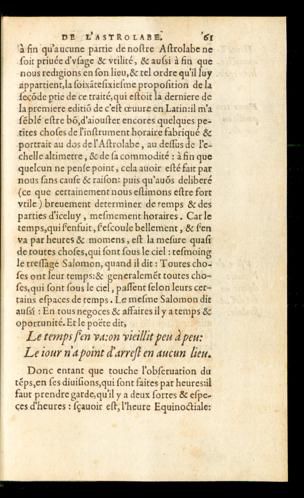 DE L'ASTROLABE. 61
à fin qu'aucune partie de nostre Astrolabe ne
soit priuée d'vsage & vtilité, & aussi à fin que
nous redigions en son lieu, & tel ordre qu'il luy
appartient, la soixãtesixiesme proposition de la
secõde ptie de ce traité, qui estoit la derniere de
la premiere editiõ de c'est œuure en Latin: il m'a
sẽblé estre bõ, d'aiouster encores quelques pe-
tites choses de l'instrument horaire fabriqué &
portrait au dos de l'Astrolabe, au dessus de l'e-
chelle altimetre, & de sa commodité: à fin que
quelcun ne pense point, cela auoir esté fait par
nous sans cause & raison: puis qu'auõs deliberé
(ce que certainement nous estimons estre fort
vtile) breuement determiner de temps & des
parties d'iceluy, mesmement horaires. Car le
temps, qui s'enfuit, s'escoule bellement, & s'en
va par heures & momens, est la mesure quasi
de toutes choses, qui sont sous le ciel: tesmoing
le tressage Salomon, quand il dit: Toutes cho-
ses ont leur temps: & generalemẽt toutes cho-
ses, qui sont sous le ciel, passent selon leurs cer-
tains espaces de temps. Le mesme Salomon dit
aussi: En tous negoces & affaires il y a temps &
oportunité. Et le poëte dit,
Le temps s'en va: on vieillit peu à peu:
Le iour n'a point d'arrest en aucun lieu.
Donc entant que touche l'obseruation du
tẽps, en ses diuisions, qui sont faites par heures: il
faut prendre garde, qu'il y a deux sortes & espe-
ces d'heures: sçauoir est, l'heure Equinoctiale: